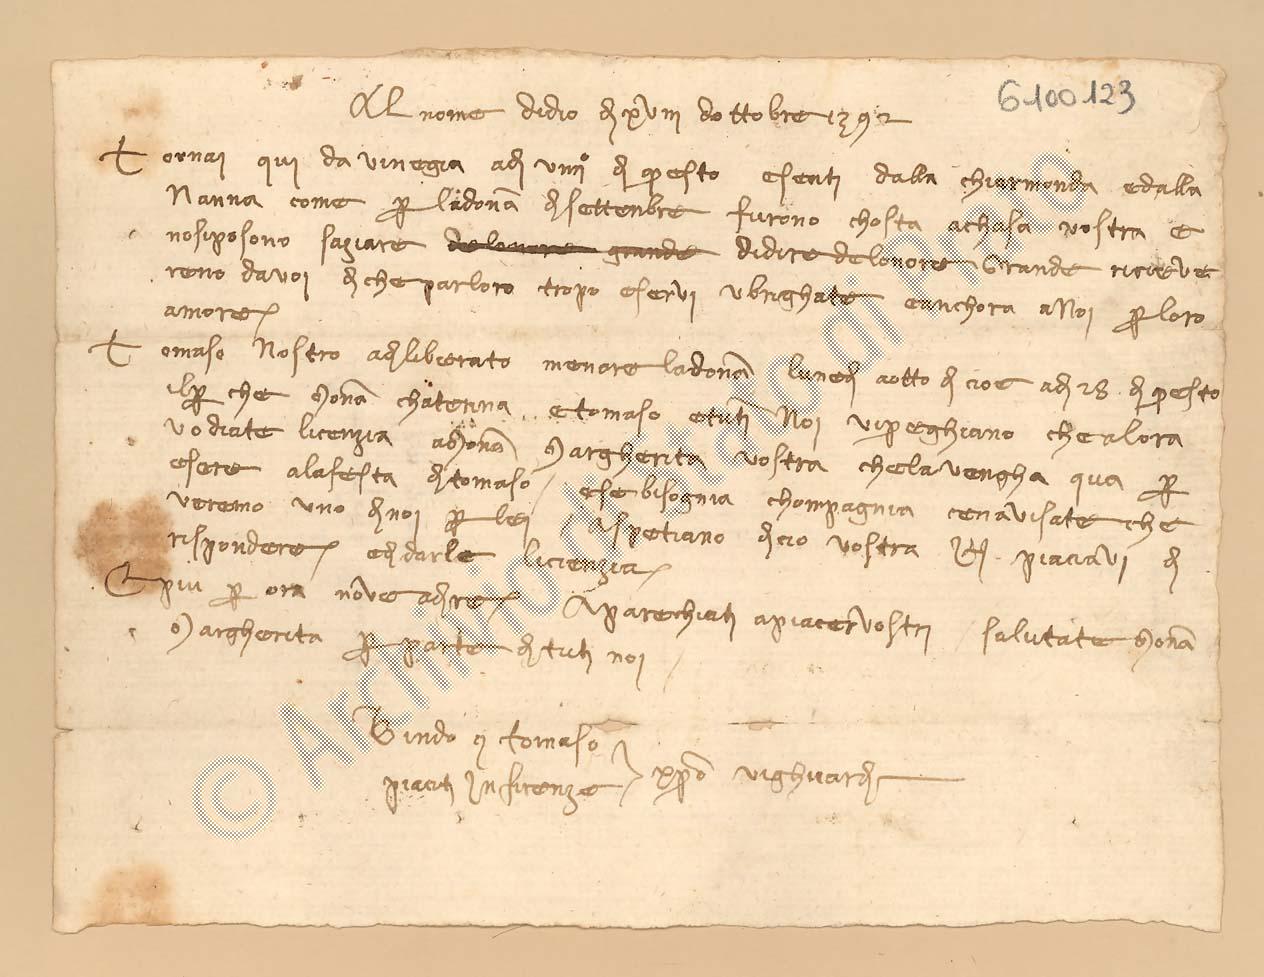 6100123
Al nome didio dì xviii dottobre 1392
Tornai qui da vinegia adì viiij° di questo e senti dalla chiermonda e dalla
Nanna come per ladonā di settenbre furono chosta achasa vostra e
nosiposono saziare delonore grande didire delonore Grande ricieve
reno davoi di che parloro tropo eservi ubrighate e anchora a Noi per loro
amore
Tomaso Nostro adiliberato menare ladonā lunedì aotto di cioe adì 28 di questo
ilper che Monā chaterina e tomaso e tuti Noi vi preghiano che alora
vo diate licenzia a Monā Margherita vostra chella vengha qua per
esere alafesta di tomaso / e se bisognia chompagnia cenavisate che
veremo uno di noi per lei Aspetiano di cio vostra piaciavi di
rispondere e di darle licienzia
E piu per ora nōve adire Aparechiati apiacer vostri / salutate Monā
Margherita per parte di tuti noi /
Bindo e tomaso
piaciti In firenze
© Archivio di Stato di Prato